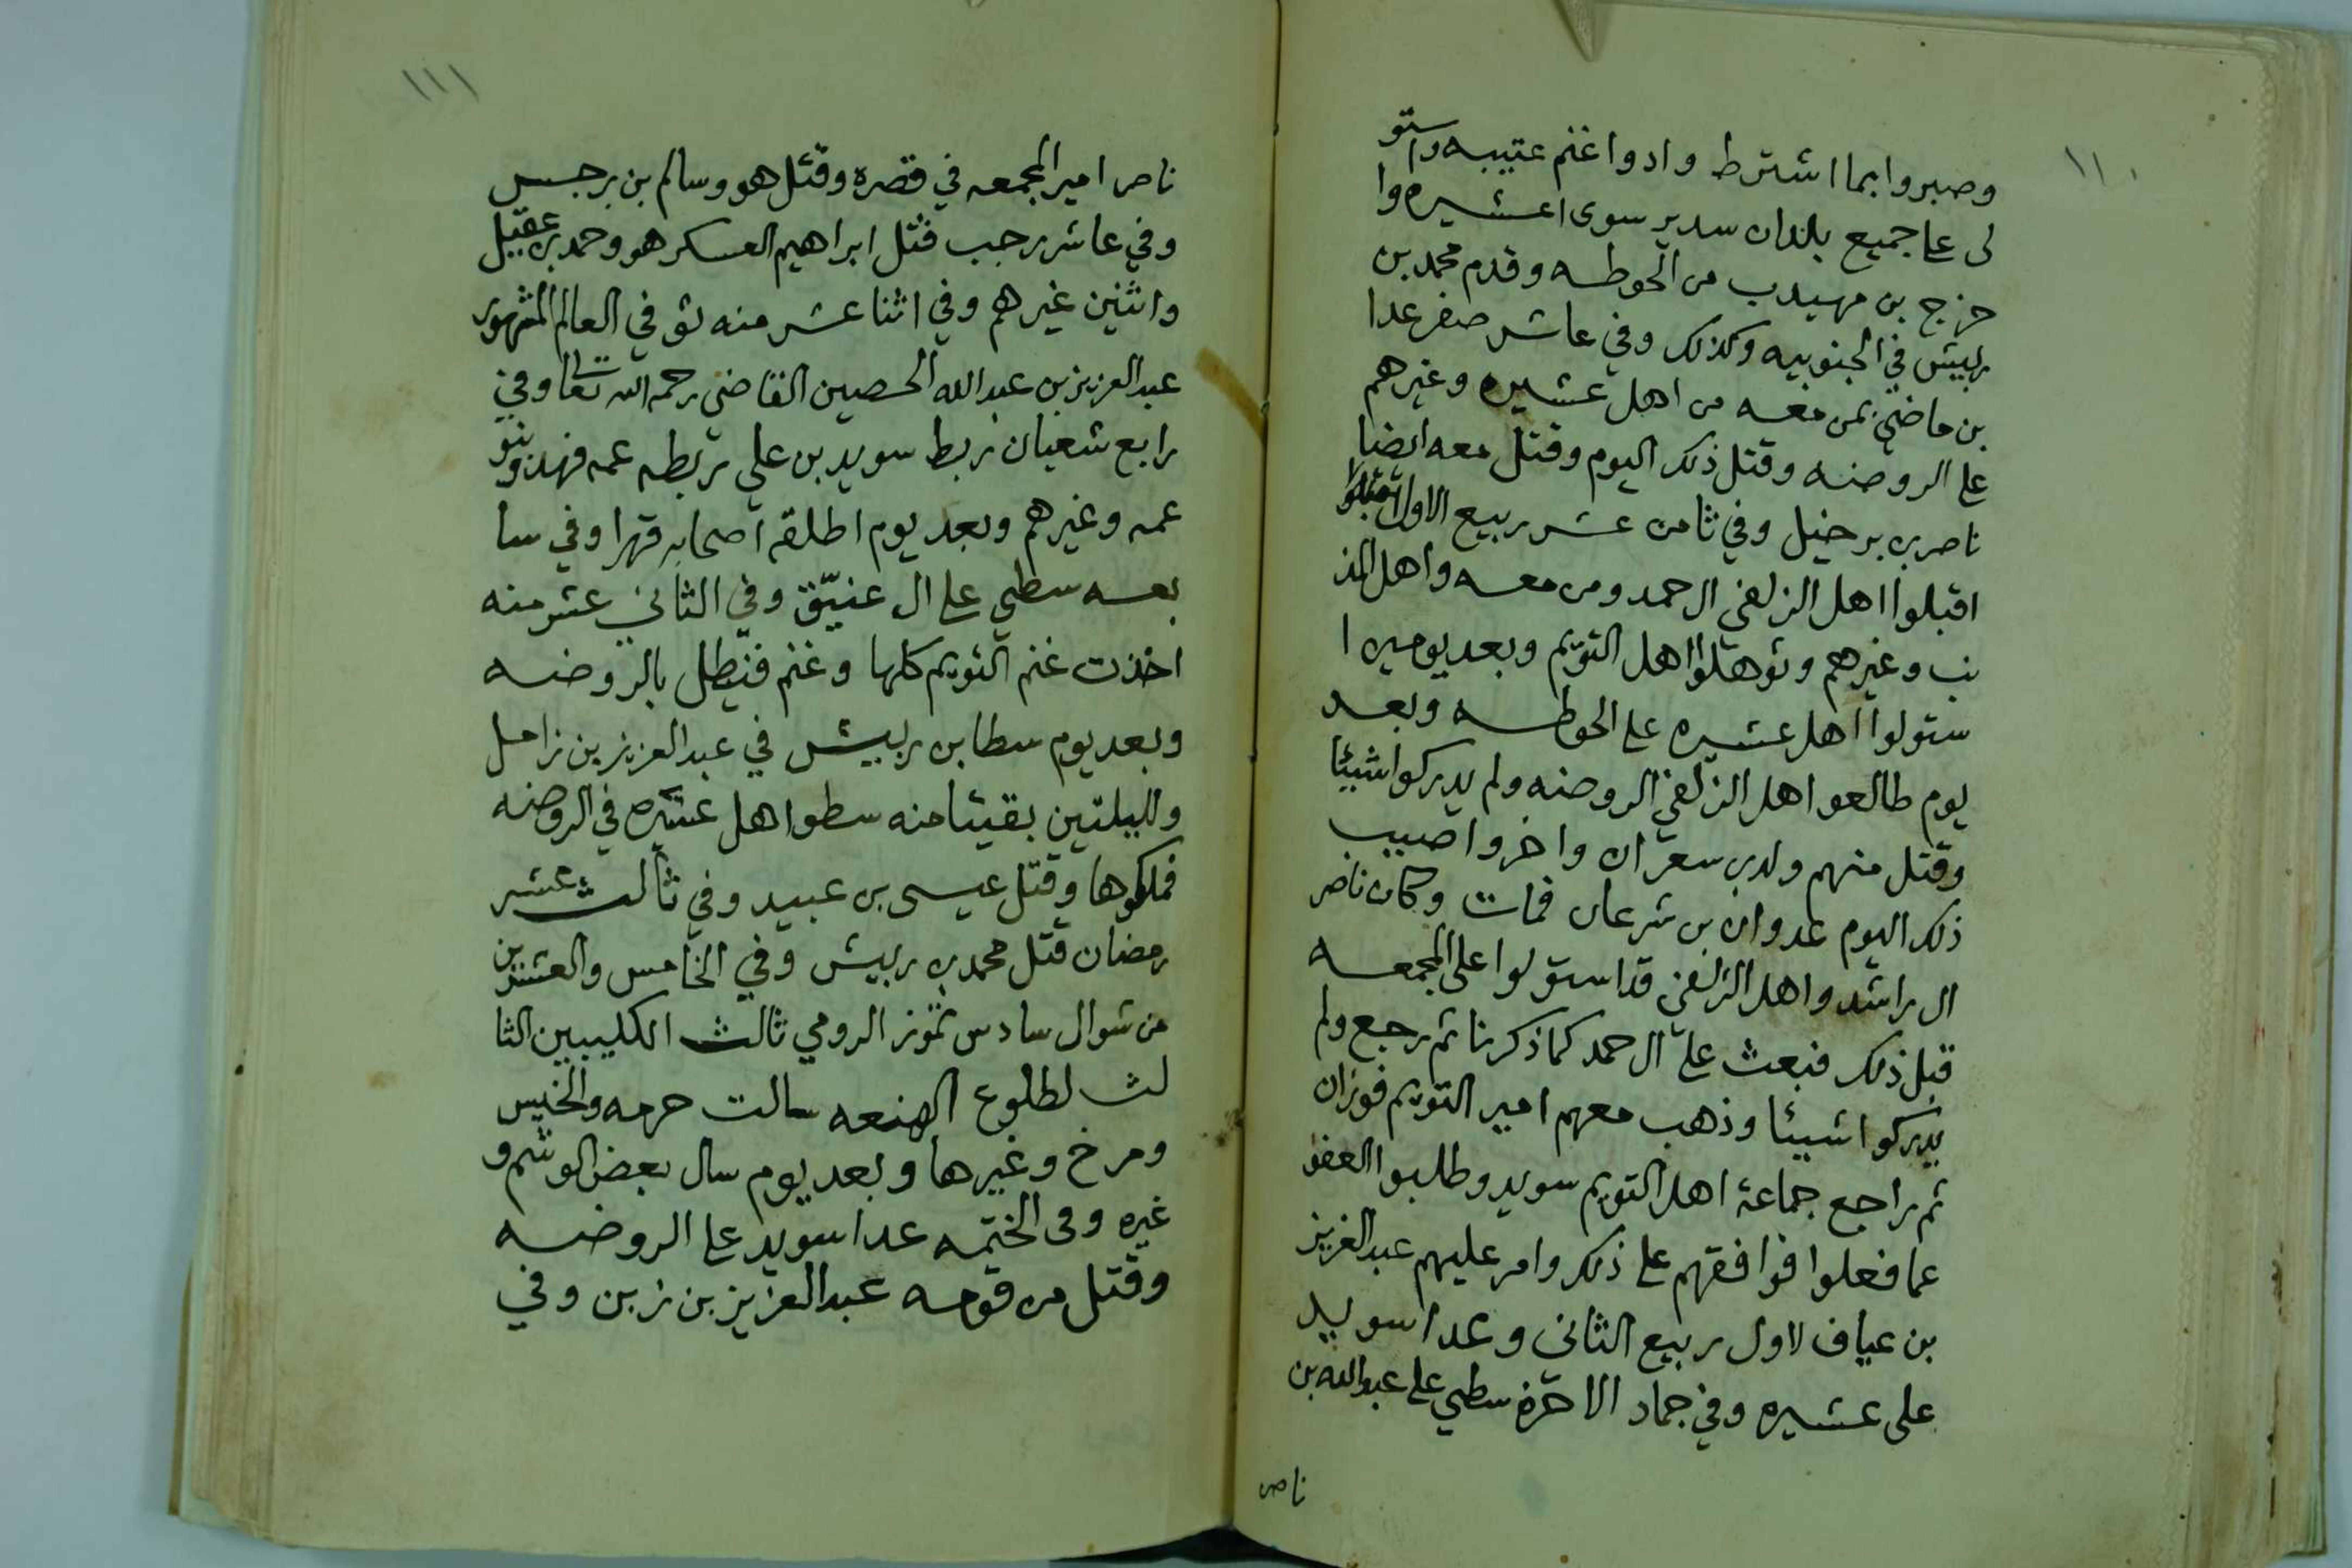 ١١٠
وصبروا بما اشترط وادوا غنم عتيبه واستو
لى على جميع بلدان سدير سوى اعشيره وا
خرج بن مهيدب من الحوطه وقدم محمد بن
ربيش في الجنوبيه وكذلك وفي عاشر صفر عدا
بن ماضي بمن معه من اهل عشيره وغيرهم
على الروضه وقتل ذلك اليوم وقتل معه ايضا
ناصر بن برخيل وفي ثامن عشر ربيع الاول
اقبلوا اهل الزلفي ال حمد ومن معه واهل المذ
نب وغيرهم وتوهقلوا اهل التويم وبعد يومين ا
ستولوا اهل عشيره على الحوطه وبعد
يوم طالعوا اهل الزلفي الروضه ولم يدركوا شيئا
وقتل منهم ولد بن سعران واخروا صبيب
ذلك اليوم عدوان بن شرعان فمات وكان ناصر
ال راشد واهل الزلفي قد استولوا على المجمعه
قبل ذلك فبعث على ال حمد كما ذكرنا ثم رجع ولم
يدركوا شيئا وذهب معهم امير التويم فوزان
ثم راجع جماعة اهل التويم سويد وطلبوا العفو
عما فعلوا فوافقهم على ذلك وامر عليهم عبد العزيز
بن عياف لاول ربيع الثاني وعدا سويد
على عشيره وفي جماد الاخرة سطى على عبد الله بن
ناصر
١١١
ناصر امير المجمعه في قصره وقتل هو وسالم بن برجس
وفي عاشر رجب قتل ابراهيم العسكر هو وحمد بن عقيل
واثنين غيرهم وفي اثنا عشر منه توفي العالم المشهور
عبد العزيز بن عبد الله الحصين القاضي رحمه الله تعالى وفي
رابع شعبان ربط سويد بن علي ربطه عمه فهد وبنو
عمه وغيرهم وبعد يوم اطلقه اصحابه قهرا وفي سا
بعه سطي على ال عنيّق وفي الثاني عشر منه
اخذت غنم التويم كلها وغنم فنيطل بالروضه
وبعد يوم سطا بن ربيش في عبد العزيز بن زامل
ولليلتين بقيتا منه سطوا اهل عشيره في الروضه
فملكوها وقتل عيسى بن عبيد وفي ثالث عشر
رمضان قتل محمد بن ربيش وفي الخامس والعشرين
من شوال سادس تموز الرومي ثالث الكليبين الثا
لث لطلوع الهنعه سالت حرمه والخيس
ومرخ وغيرها وبعد يوم سال بعض الوشم و
غيره وفى الختمه عدا سويد على الروضه
وقتل من قومه عبد العزيز بن زبن وفي